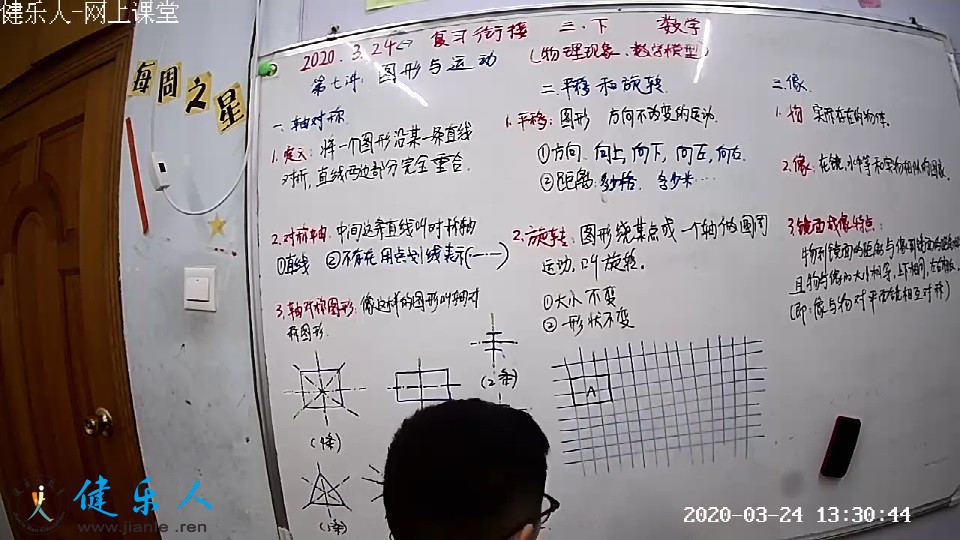 健乐人-网上课堂
每周之星
2020.3.24 复习衔接 三.下 数学
第七讲 图形与运动
(物理现象、数学模型)
一、轴对称
1.定义:将一个图形沿某一条直线
对折,直线两边部分完全重合.
2.对称轴:中间这条直线叫对称轴
①直线 ②不存在用点划线表示(-·-·-)
3.轴对称图形:像这样的图形叫轴对
称图形.
(2条)
(4条)
(3条)
二.平移和旋转
1.平移:图形 方向不改变的运动.
①方向:向上,向下,向左,向右.
②距离:多少格. 多少米…
2.旋转:图形绕某点或一个轴做圆周
运动.叫旋转.
①大小不变
②形状不变
A
三.像.
1.物 实际存在的物体.
2.像:在镜、水中等和实物相似的图象.
3.镜面成像特点:
物到镜面的距离与像到镜面的距离
且物与像的大小相等,上下相同,左右
(即:像与物对平面镜相互对称)
健乐人
www.jianle.ren
2020-03-24 13:30:44